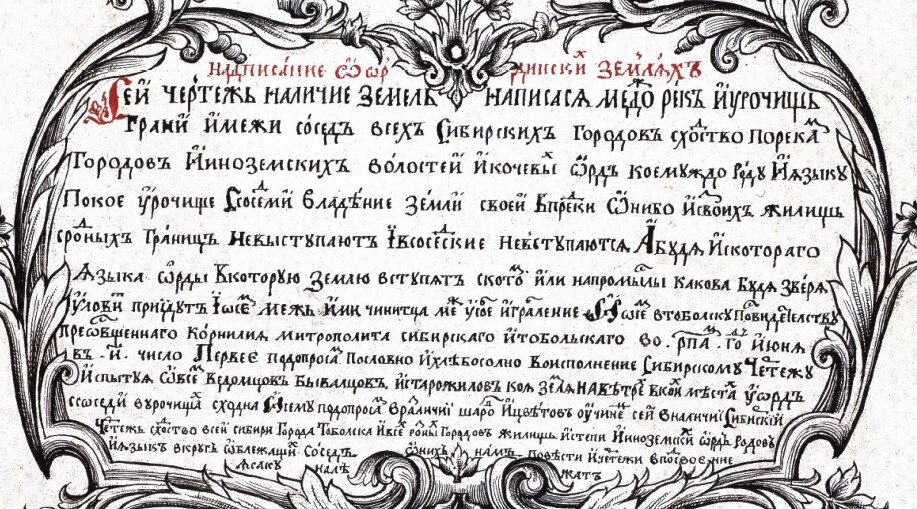 надписание ѿ ѡр динскиⷯ земⷧяхъ
Сей чертежъ наличие земель написася межⷣо рекъ и урочищь
грани и межи соседъ всехъ Сибирскихъ городовъ сходство по рекаⷨ
городов и иноземских волостей и кочевыⷯ ѡрдъ коемуждо роду и языку
по кое урочище с соседми владение земли своей впреки они бо и своих жилищь
сроⷣныхъ границъ невыступаютъ и в соседские невступаются А будя и с котораго
языка орды в которую землю вступят скотоⷨ или на промыⷭлы какова будя зверя
и ловли приидутъ и о сеⷨ межъ ими чинитца играбление в тоболску повидетелству
преосвященнаго Корнилия митрополита сибирскаго и тобольскаго во . рпа гⷪ июня
въ . и . число Первее по допросаⷨ пословно и хлебосолно во исполнение Сибирскому Чеⷬтежу
испытуя ѡ всеⷨ ведомцовъ бывалцовъ и старожилов коя земля на ветре в коиⷯ местаⷯ у ѡрдъ
с соседи в урочищаⷯ сходна и всему по допросаⷨ в разлⷤичии и цветов учинеⷩ сей в наличии Сибирский
Чеⷬтежь сходство всей сибири города Тоболска и все городовъ жилищь и степи и иноземских ѡрдъ родов
и языкъ вкругъ облежащиⷯ соседъ ѡ них к намъ повести и чеⷬтежи
ясаку нале жатъ